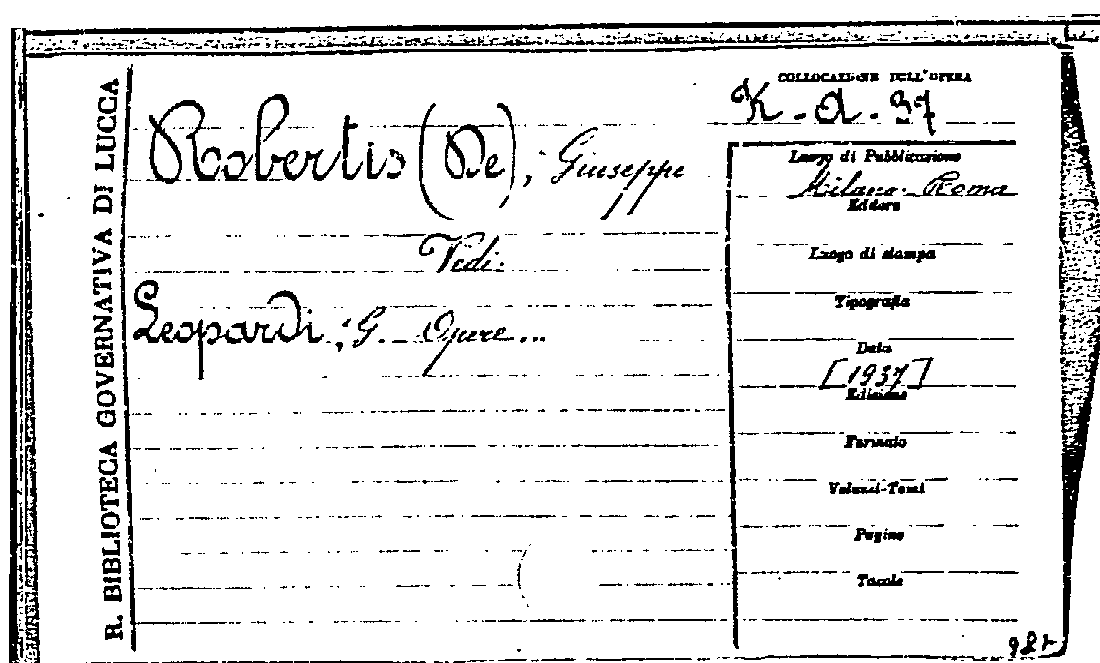 R. BIBLIOTECA GOVERNATIVA DI LUCCA
COLLOCAZIONE DELL'OPERA
K - a - 37
Robertis (De), Giuseppe
Vedi:
Leopardi, G. - Opere...
Luogo di Pubblicazione
Milano - Roma
Editore
Luogo di stampa
Tipografia
Data
[1937]
Edizione
Formato
Volumi-Tomi
Pagine
Tavole